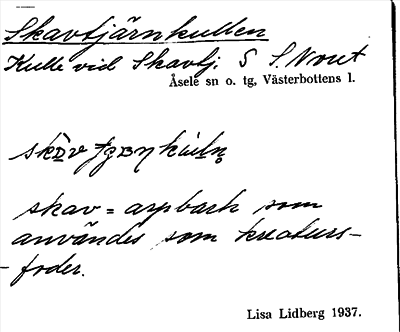 Skavtjärnkullen
Kulle vid Skavtj. S S. Nout
Åsele sn o. tg, Västerbottens l.
skav = aspbark som
användes som kreaturs-
foder.
Lisa Lidberg 1937.